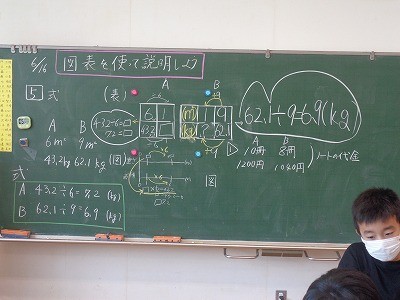 6/16 図表を使って説明しよう
5 式 (表)
A B
6m² 9m²
43.2kg 62.1kg (図)
式
A 43.2÷6=7.2 (kg)
B 62.1÷9=6.9 (kg)
43.2÷6=□
7.2=□
A
6 1
43.2 □
÷6
B
m² 1 9
kg ? 62.1
÷9
図
62.1÷9=6.9(kg)
A B
10冊 8冊
1200円 1040円
ノートの代金